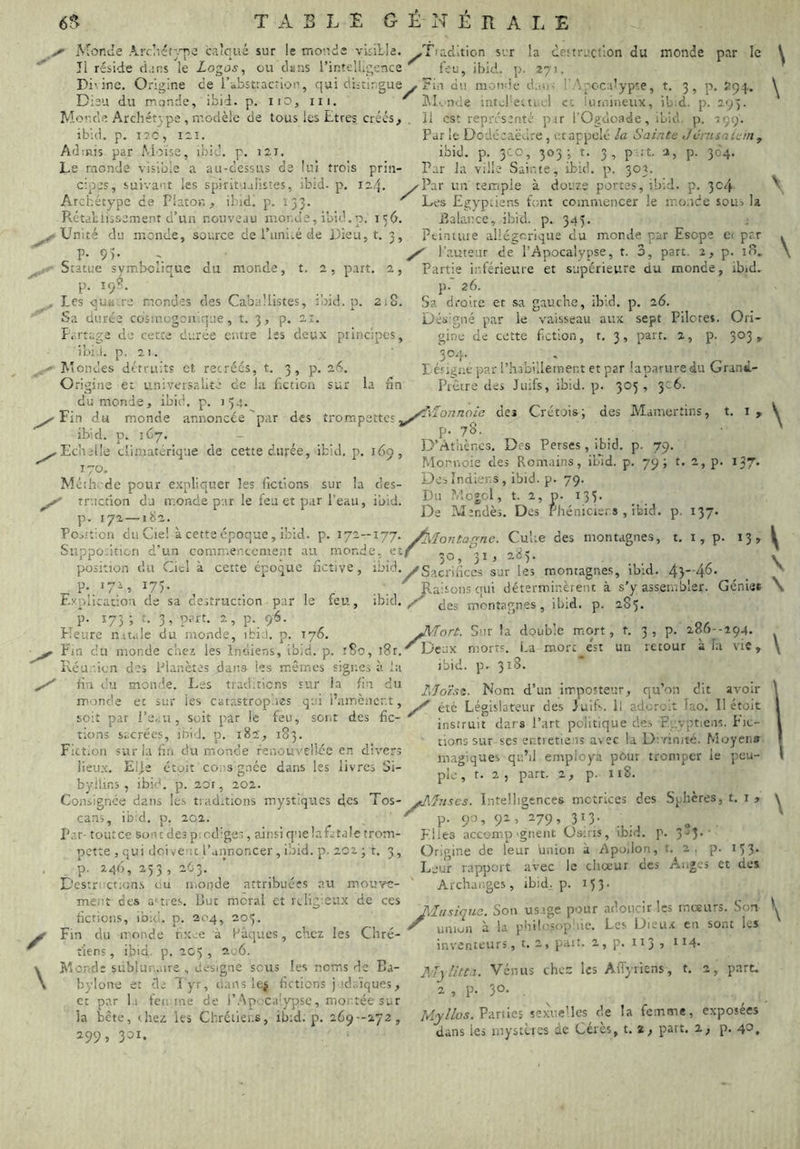 68 TABLE GÉNÉRALE
Monde Archétype calqué sur le monde visible.
Il réside dans le Logos, ou dans l'intelligence
Divine. Origine de l'abstraction, qui distingue
Dieu du monde, ibid. p. 110, 111.
Monde Archétype, modèle de tous les Etres créés,
ibid. p. 120, 121.
Admis par Moise, ibid. p. 121.
Le monde visible a au-dessus de lui trois prin-
cipes, suivant les spiritualistes, ibid. p. 124.
Archétype de Platon, ibid. p. 133.
Rétablissement d'un nouveau monde, ibid. p. 156.
Unité du monde, source de l'unité de Dieu, t. 3,
p. 95.
Statue symbolique du monde, t. 2, part. 2,
p. 198.
Les quatre mondes des Caballistes, ibid. p. 218.
Sa durée cosmogonique, t. 3, p. 21.
Partage de cette durée entre les deux principes,
ibid. p. 21.
Mondes détruits et recréés, t. 3, p. 26.
Origine et universalité de la fiction sur la fin
du monde, ibid. p. 154.
Fin du monde annoncée par des trompettes
ibid. p. 167.
Echelle climatérique de cette durée, ibid. p. 169,
170.
Méthode pour expliquer les fictions sur la des-
truction du monde par le feu et par l'eau, ibid.
p. 172—182.
Position du Ciel à cette époque, ibid. p. 172--177.
Supposition d'un commencement au monde, et
position du Ciel à cette époque fictive, ibid.
p. 172, 175.
Explication de sa destruction par le feu, ibid.
p. 173; t. 3, part. 2, p. 96.
Heure natale du monde, ibid. p. 176.
Fin du monde chez les Indiens, ibid. p. 180, 181.
Réunion des Planètes dans les mêmes signes à la
fin du monde. Les traditions sur la fin du
monde et sur les catastrophes qui l'amènent,
soit par l'eau, soit par le feu, sont des fic-
tions sacrées, ibid. p. 182, 183.
Fiction sur la fin du monde renouvellée en divers
lieux. Elle étoit consignée dans les livres Si-
byllins, ibid. p. 201, 202.
Consignée dans les traditions mystiques des Tos-
cans, ibid. p. 202.
Par-tout ce sont des prodiges, ainsi que la fatale trom-
pette, qui doivent l'annoncer, ibid. p. 202; t. 3,
p. 246, 253, 263.
Destructions du monde attribuées au mouve-
ment des astres. But moral et religieux de ces
fictions, ibid. p. 204, 205.
Fin du monde fixée à Pâques, chez les Chré-
tiens, ibid. p. 205, 206.
Monde sublunaire, désigné sous les noms de Ba-
bylone et de Tyr, dans les fictions judaïques,
et par la femme de l'Apocalypse, montée sur
la bête, chez les Chrétiens, ibid. p. 269--272,
299, 301.
Tradition sur la destruction du monde par le
feu, ibid. p. 271.
Fin du monde dans l'Apocalypse, t. 3, p. 294.
Monde intellectuel et lumineux, ibid. p. 295.
Il est représenté par l'Ogdoade, ibid. p. 299.
Par le Dodécaèdre, et appelé la Sainte Jérusalem,
ibid. p. 300, 303; t. 3, part. 2, p. 304.
Par la ville Sainte, ibid. p. 303.
Par un temple à douze portes, ibid. p. 304
Les Egyptiens font commencer le monde sous la
Balance, ibid. p. 345.
Peinture allégorique du monde par Esope et par
l'auteur de l'Apocalypse, t. 3, part. 2, p. 18.
Partie inférieure et supérieure du monde, ibid.
p. 26.
Sa droite et sa gauche, ibid. p. 26.
Désigné par le vaisseau aux sept Pilotes. Ori-
gine de cette fiction, t. 3, part. 2, p. 303,
304.
Désigné par l'habillement et par la parure du Grand-
Prêtre des Juifs, ibid. p. 305, 306.
Monnoie des Crétois; des Mamertins, t. 1,
p. 78.
D'Athènes. Des Perses, ibid. p. 79.
Monnoie des Romains, ibid. p. 79; t. 2, p. 137.
Des Indiens, ibid. p. 79.
Du Mogol, t. 2, p. 135.
De Mendès. Des Phéniciers, ibid. p. 137.
Montagne. Culte des montagnes, t. 1, p. 13,
30, 31, 285.
Sacrifices sur les montagnes, ibid. 43--46.
Raisons qui déterminèrent à s'y assembler. Génies
des montagnes, ibid. p. 285.
Mort. Sur la double mort, t. 3, p. 286--294.
Deux morts. La mort est un retour à la vie,
ibid. p. 318.
Moïse. Nom d'un imposteur, qu'on dit avoir
été Législateur des Juifs. Il adoroit Iao. Il étoit
instruit dans l'art politique des Egyptiens. Fic-
tions sur ses entretiens avec la Divinité. Moyens
magiques qu'il employa pour tromper le peu-
ple, t. 2, part. 2, p. 118.
Muses. Intelligences motrices des Sphères, t. 1,
p. 90, 92, 279, 313.
Elles accompagnent Osiris, ibid. p. 393.
Origine de leur union à Apollon, t. 2. p. 153.
Leur rapport avec le chœur des Anges et des
Archanges, ibid. p. 153.
Musique. Son usage pour adoucir les mœurs. Son
union à la philosophie. Les Dieux en sont les
inventeurs, t. 2, part. 2, p. 113, 114.
Mylitta. Vénus chez les Assyriens, t. 2, part.
2, p. 30.
Myllos. Parties sexuelles de la femme, exposées
dans les mystères de Cérès, t. 2, part. 2, p. 40.